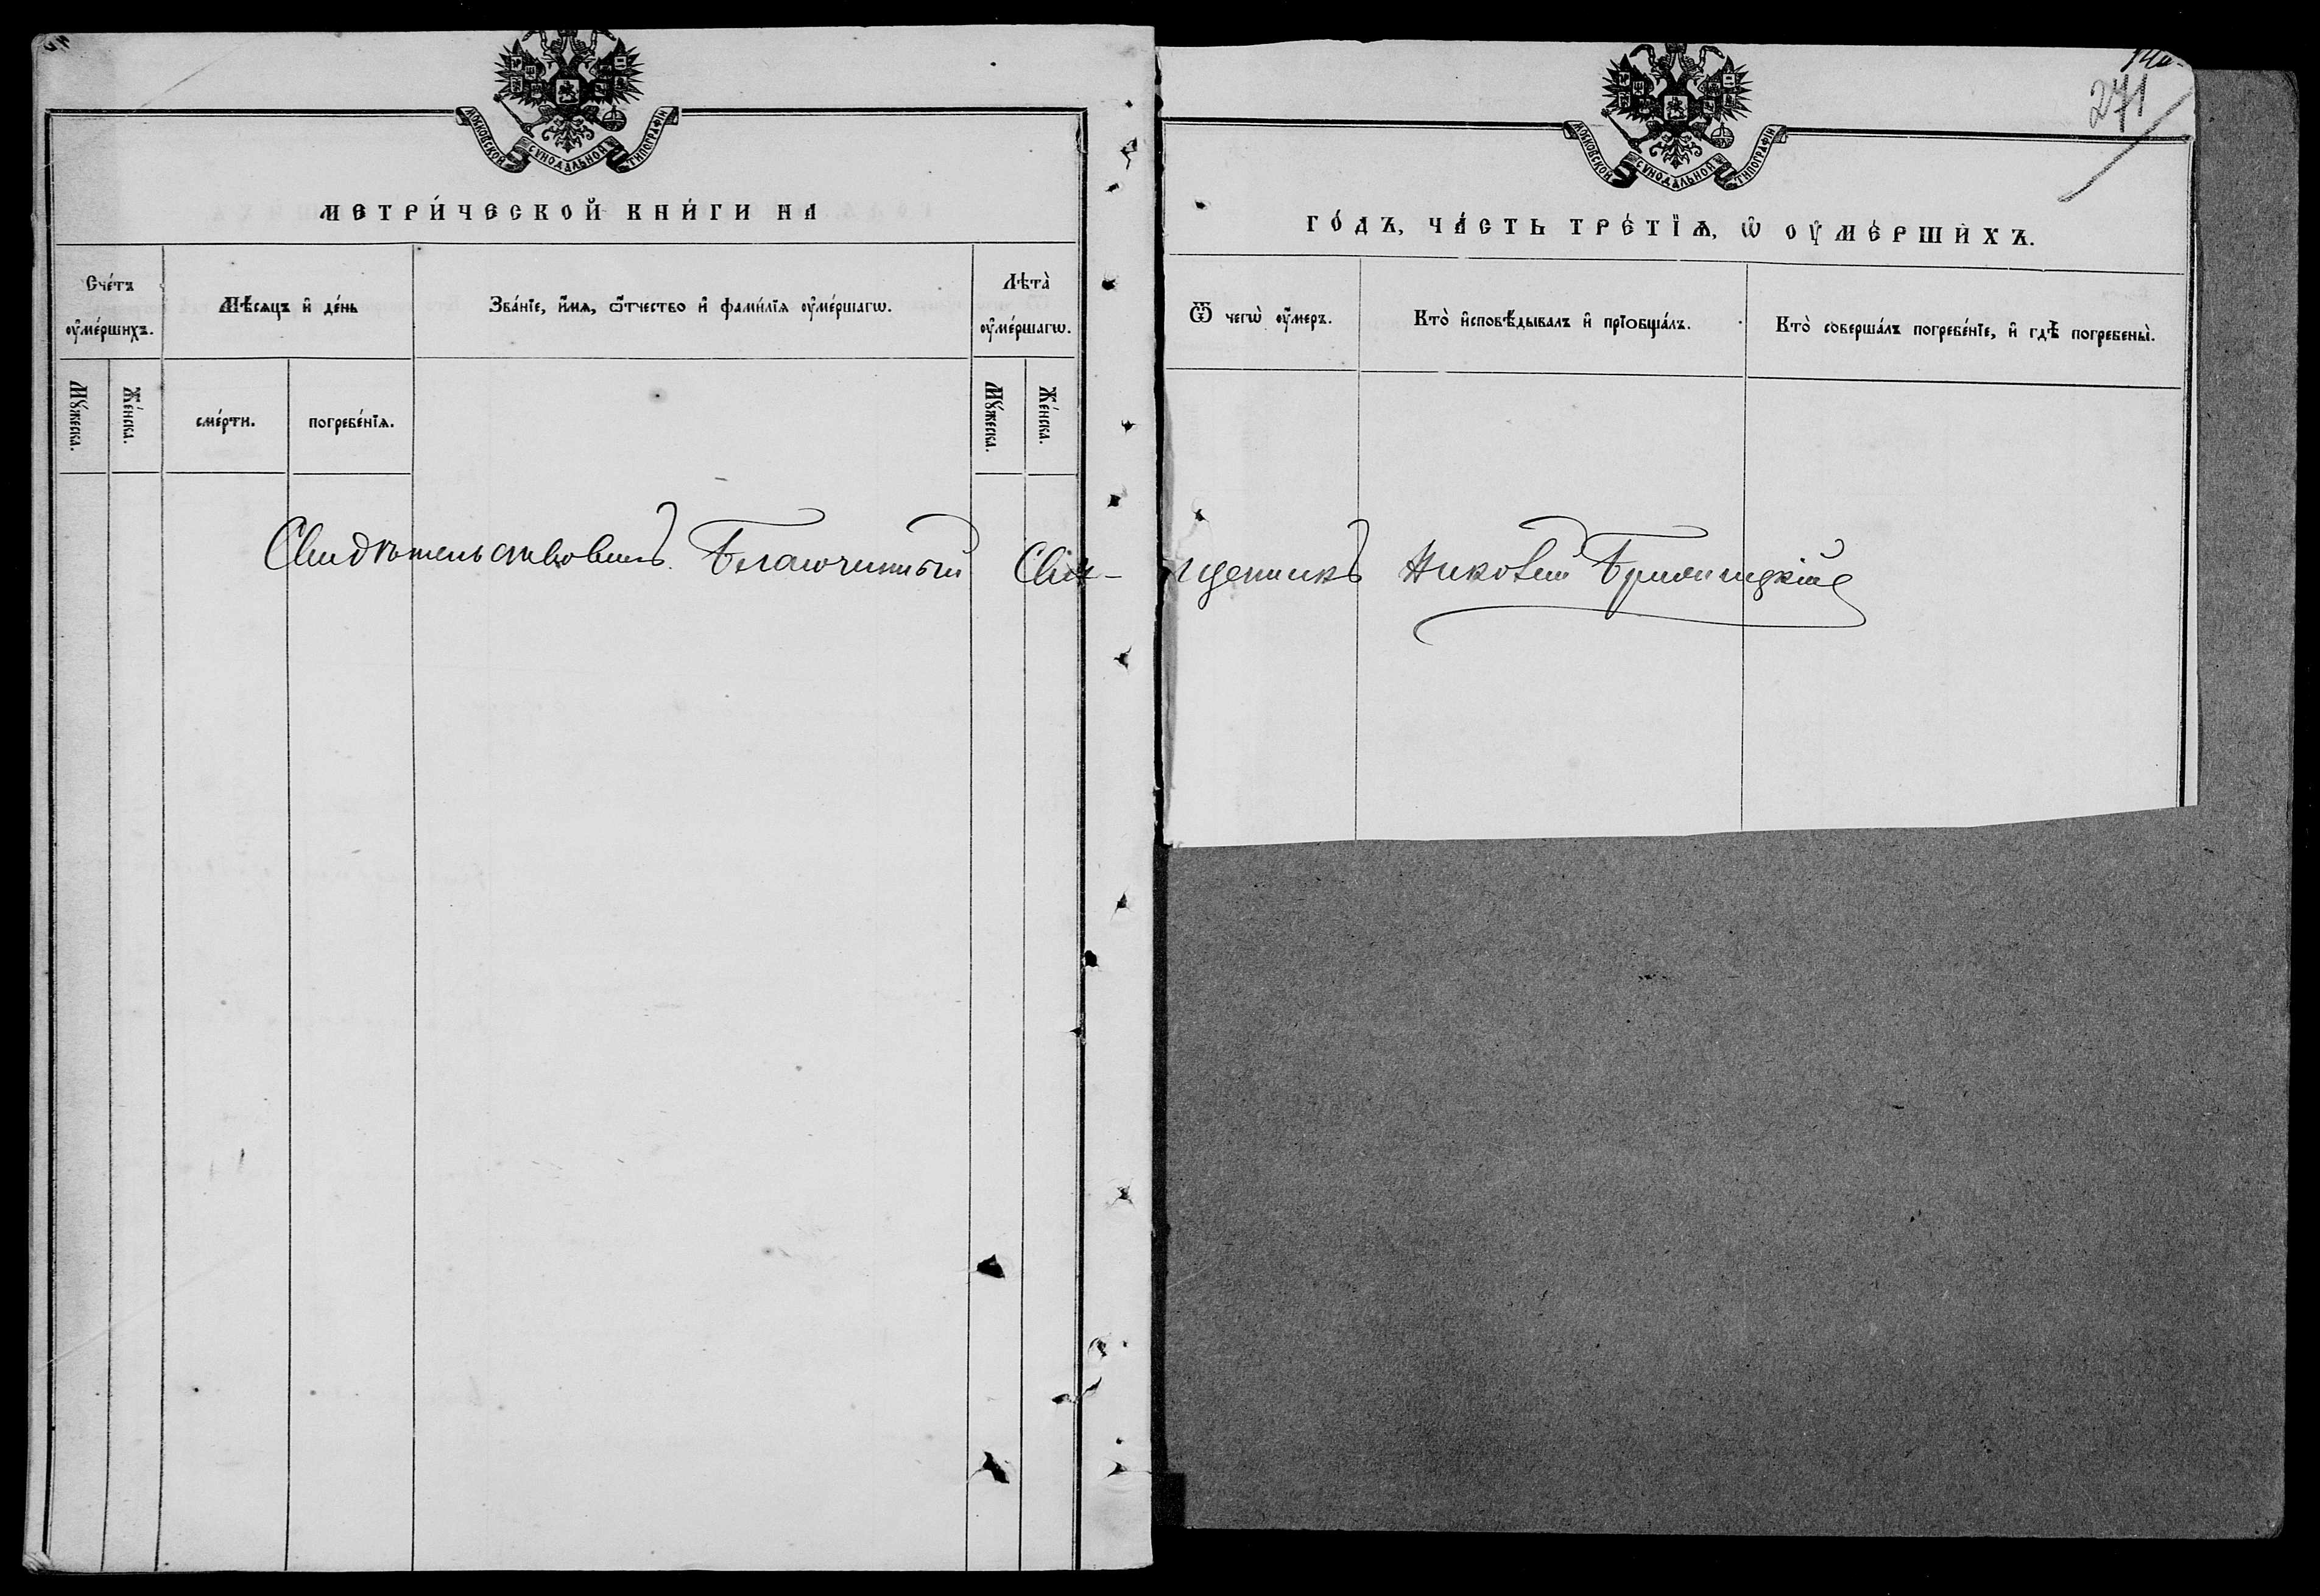 МОСКОВСКОЙ СѴНОДАЛЬНОЙ ТИПОГРАФІИ
МЕТРИ́ЧЕСКОЙ КНИ́ГИ НА
Сче́тъ оу҆ме́ршихъ.
Мѣ́сяцъ и҆ де́нь
Зва́нїе, и҆́мя, ѻ҆́тчество и҆ фами́лїя оу҆ме́ршагѡ.
Лѣта̀ оу҆ме́ршагѡ.
Мꙋ́жеска.
Же́нска.
сме́рти.
погребе́нїя.
Мꙋ́жеска.
Же́нска.
Свидѣтельствовалъ Благочинный Свя-
271
МОСКОВСКОЙ СѴНОДАЛЬНОЙ ТИПОГРАФІИ
ГО́ДЪ, ЧА́СТЬ ТРЕ́ТЇѦ, Ѡ҆ ОУ҆МЕ́РШИХЪ.
Ѿ чегѡ̀ оу҆́меръ.
Кто̀ и҆сповѣ́дывалъ и҆ прїобща́лъ.
Кто̀ соверша́лъ погребе́нїе, и҆ гдѣ̀ погребены̀.
щенникъ